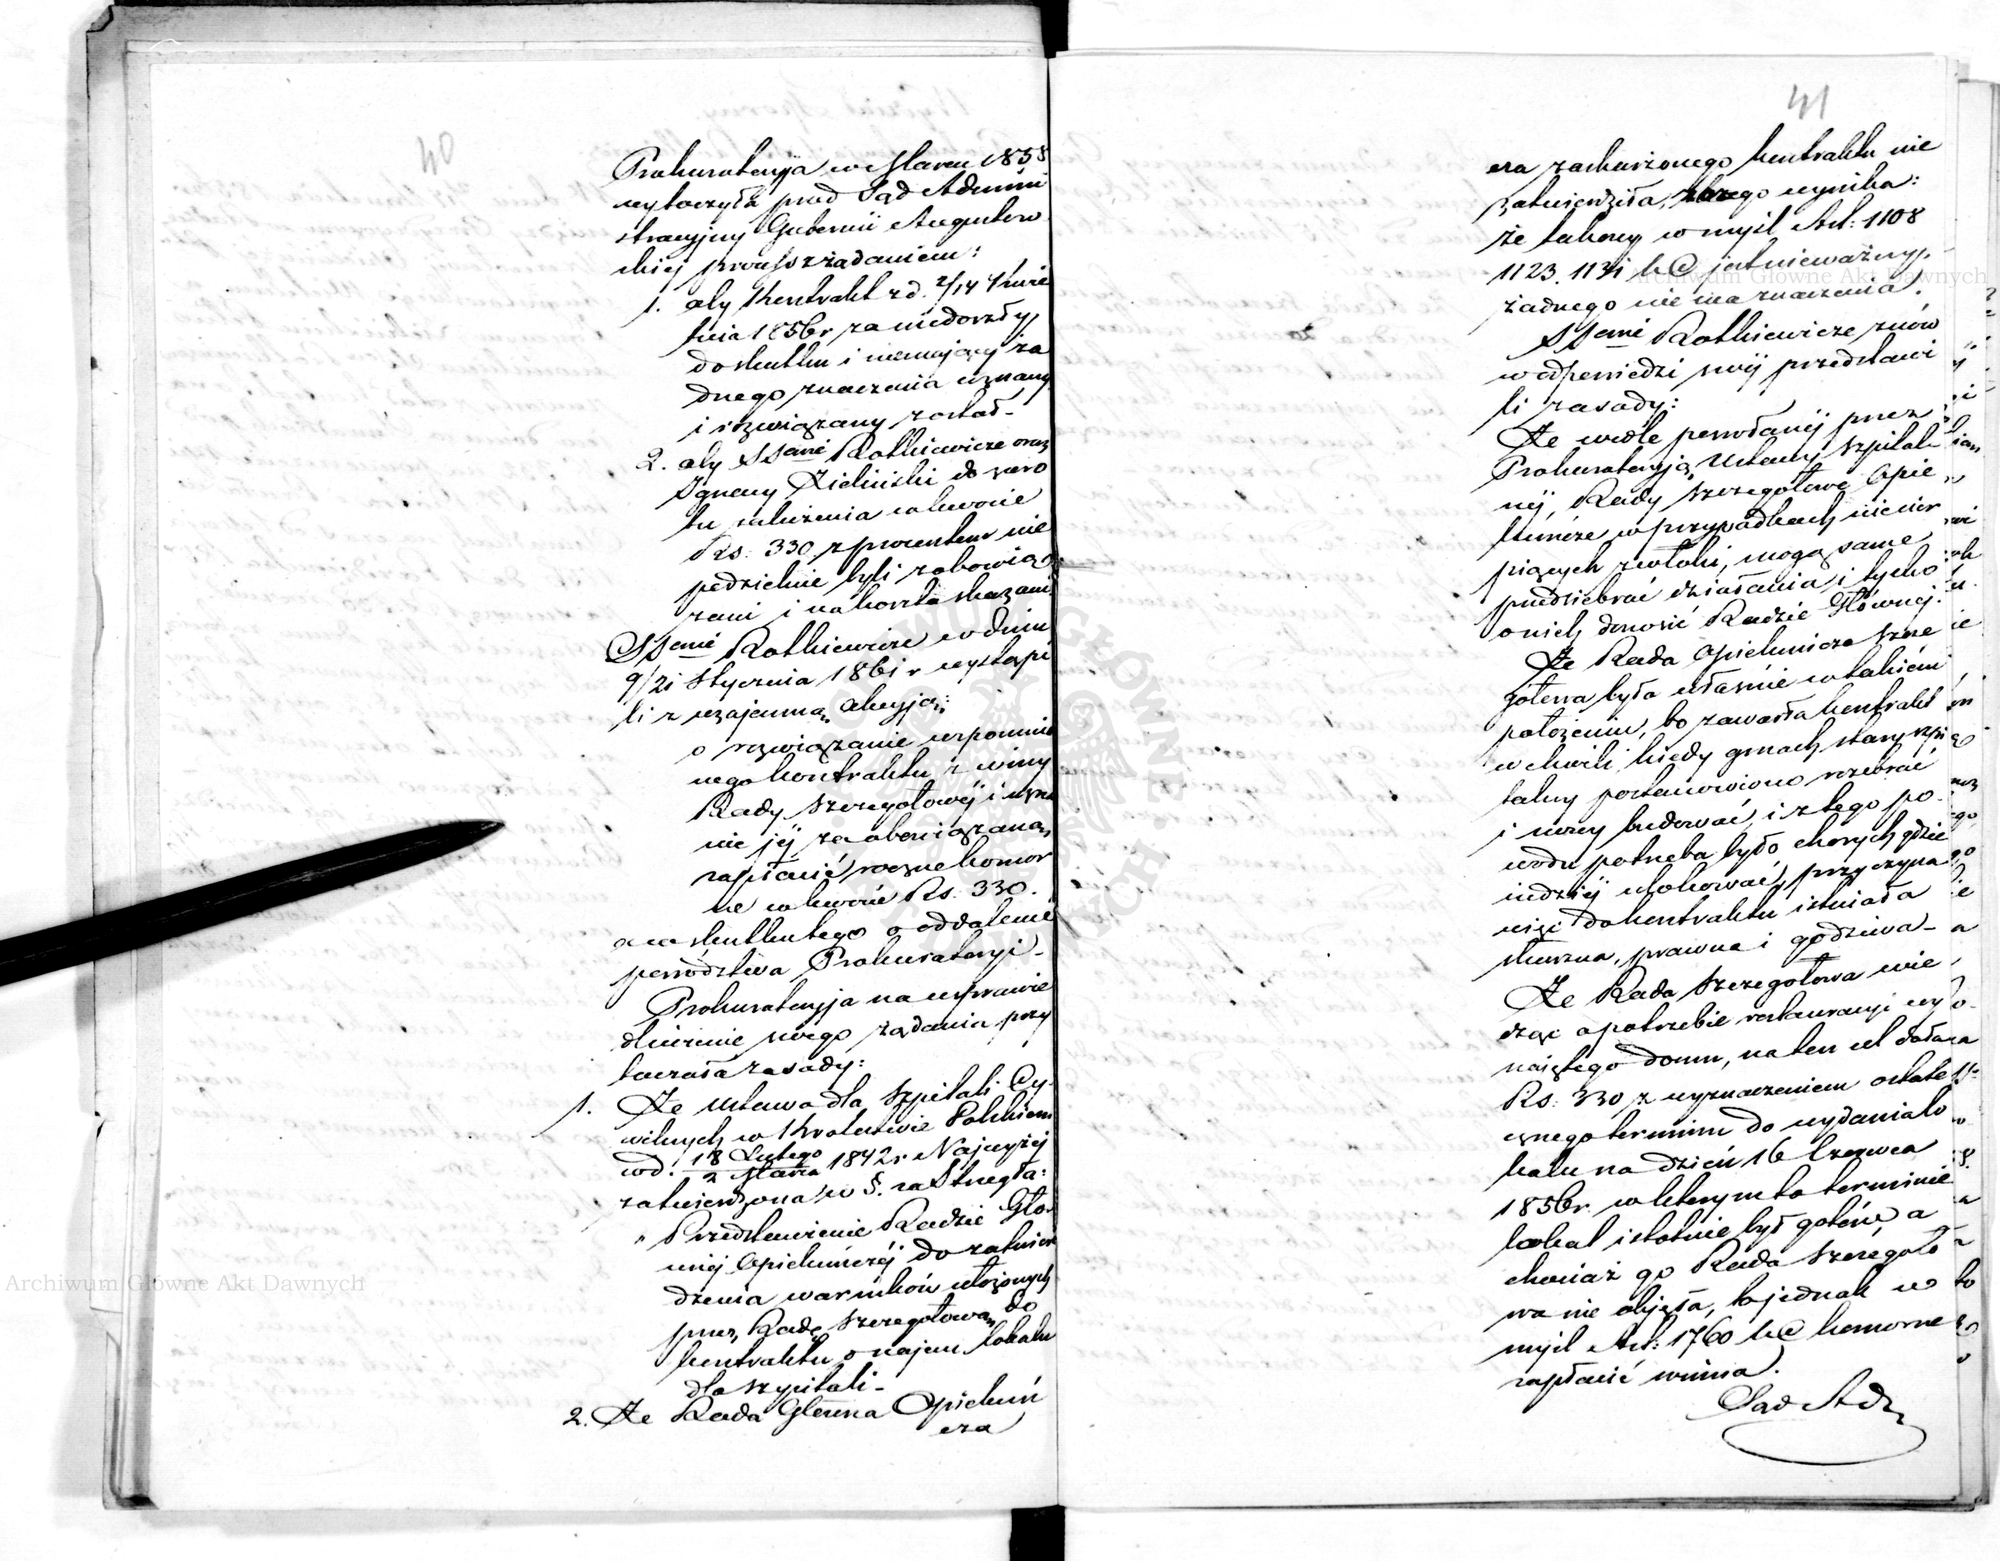 40
Prokuratoryja w Marcu 1858
wytoczyła przed Sąd Admini
stracyjny Gubernii Augustow
skiej proces z żądaniem:
1. aby Kontrakt z d. 2/14 Kwie
tnia 1856 r za niedoszły
do skutku i niemający ża
dnego znaczenia uznany
i rozwiązany został_
2. aby SSrowie Rotkiewicze oraz
Ignacy Zieliński do zwro
tu zaliczenia w kwocie
Rs: 330 z procentem nie
podzielnie byli zobowią
zani i na koszta skazani
SSrowie Rotkiewicze w dniu
9/21 Stycznia 1861 r wystąpi
li z wzajemną akcyją:
o rozwiązanie wspomnio
nego kontraktu z winy
Rady Szczegółowéj i uzna
nie jéj za obowiązaną
zapłacić roczne komor
ne w kwocie Rs. 330.
a w skutku tego o oddalenie
powództwa Prokuratoryi_
Prokuratoryja na usprawie
dliwienie swego żądania przy
toczyła zasady:
1. Że Ustawa dla Szpitali Cy-
wilnych w Królestwie Polskiem
w d. 18 Lutego / 2 Marca 1842 r Najwyżéj
zatwierdzona w §. zastrzegła:
" Przedstawienie Radzie Głó
wnéj Opiekuńczéj do zatwier
dzenia warunków ułożonych
przez Radę Szczegółową do
kontraktu o najem lokalu
dla szpitali_
2. Że Rada Główna Opiekuń
cza
41
cza zaskarżonego kontraktu nie
zatwierdziła, z czego wynika:
że takowy w myśl Art: 1108
1123. 1131 KC jest nieważny,
żadnego nie ma znaczenia.
SSrowie Rotkiewicze znów
w odpowiedzi swéj przedstawi
li zasady:
Że wedle powołanéj przez
Prokuratoryją Ustawy Szpital
néj, Rady Szczegółowe Opie
kuńcze w przypadkach niecier
piących zwłoki, mogą same
przedsiebrać działania i tylko
o nich donosić Radzie Głównej.
Że Rada Opiekuńcza Szcze
gółowa była właśnie w takiém
położeniu, bo zawarła kontrakt
w chwili kiedy gmach stary szpi
talny postanowiono rozebrać
i nowy budować, i z tego po
wodu potrzeba było chorych gdzie
indziéj ulokować, przyczyna
więc do kontraktu istniała
słuszna, prawna i godziwa_
Że Rada Szczegółowa wie
dząc o potrzebie restauracyi wy
najętego domu, na ten cel dała
Rs: 330 z wyznaczeniem ostate
cznego terminu do wydania lo
kalu na dzień 16 Czerwca
1856 r. w którym to terminie
lokal istotnie był gotów, a
chociaż go Rada Szczegóło
wa nie objęła, to jednak w
myśl Art: 1760 KC komorne
zapłacić winna.
Sąd Adm
Archiwum Główne Akt Dawnych
Archiwum Główne Akt Dawnych